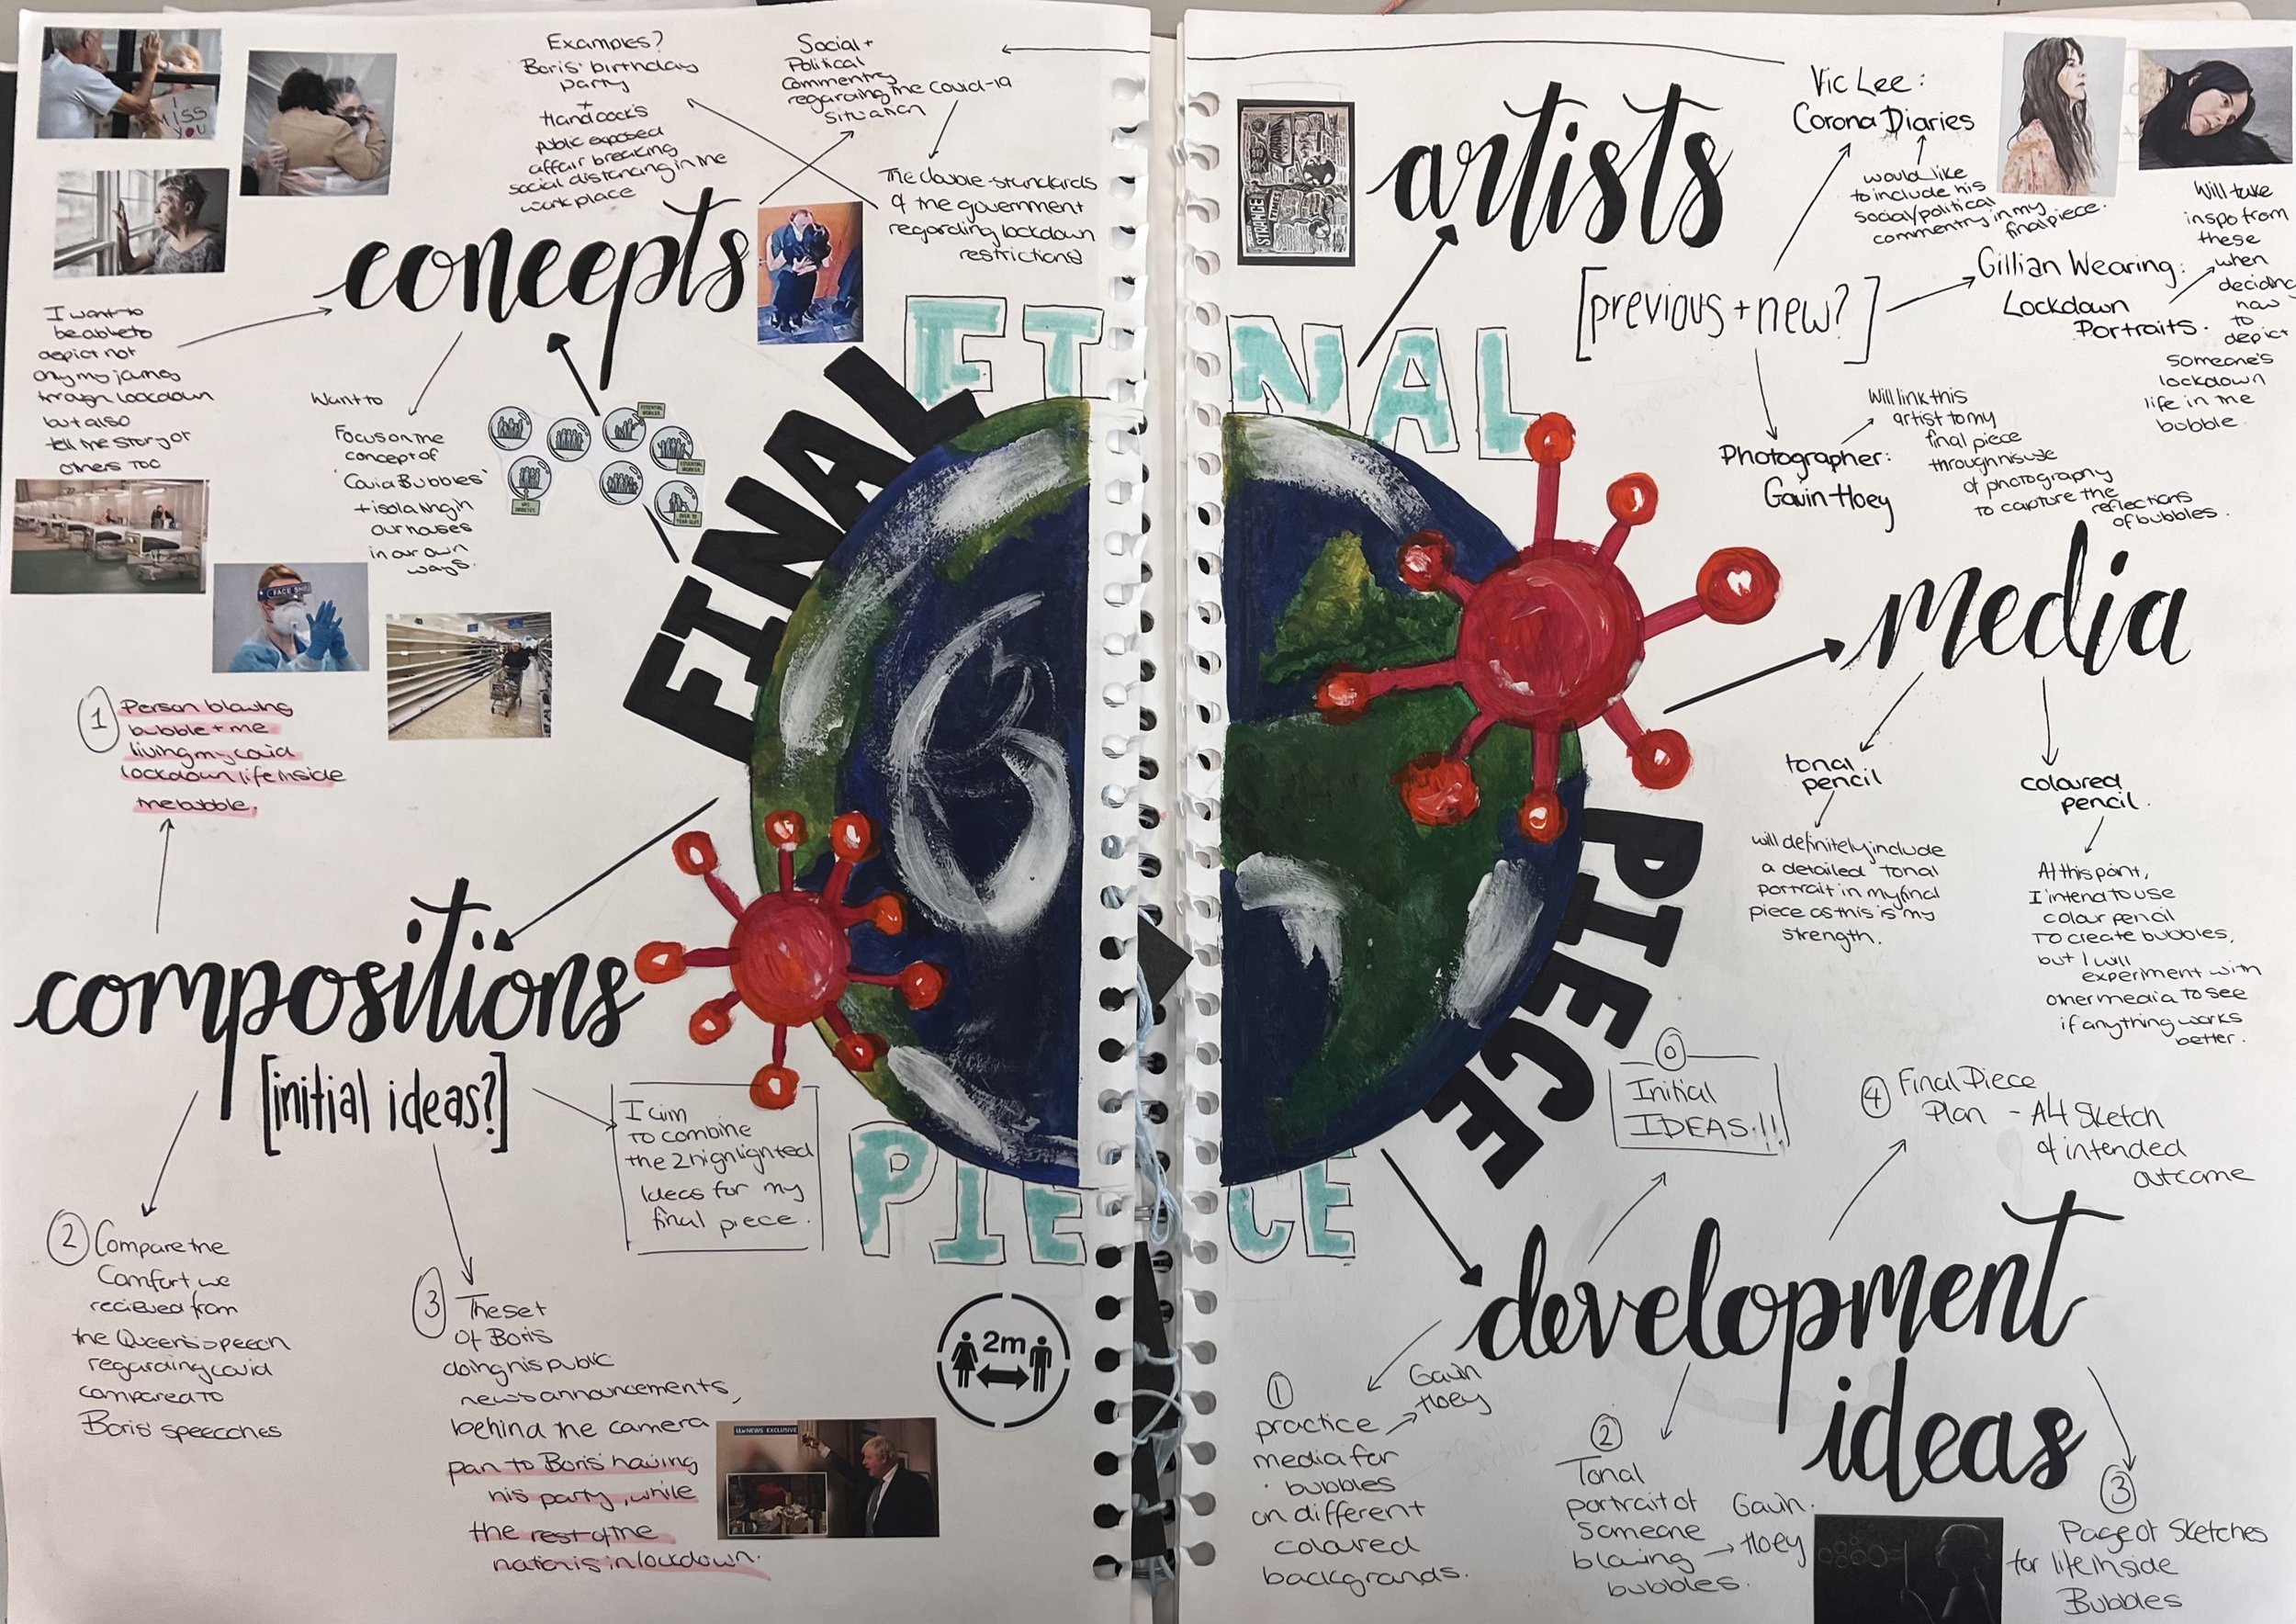 Examples?
Boris' birthday
party
+
Handcock's
public exposed
affair breaking
social distancing in the
workplace
Social +
Political
Commentry
regarding the Covid-19
situation
The double-standards
of the government
regarding lockdown
restrictions
I MISS
YOU
concepts
I want to
be able to
depict not
only my james
through lockdown
but also
tell the story of
others too
Want to
Focus on the
concept of
'Covid Bubbles'
+ isolating in
our houses
in our own
ways.
ESSENTIAL
WORKER
ESSENTIAL
WORKER
HAS
DIABETES
FACE SHIELD
FINAL
FINAL
PIECE
PIECE
1 Person blowing
bubble + me
living my covid
lockdown life inside
the bubble.
compositions
[initial ideas?]
I aim
to combine
the 2 highlighted
ideas for my
final piece.
2 Compare the
Comfort we
recieved from
the Queen's speech
regarding covid
compared to
Boris' speecches
3 The set
Of Boris
doing his public
news announcements,
behind the camera
pan to Boris' having
his party, while
the rest of the
nation is in lockdown.
ITV NEWS EXCLUSIVE
2m
STRANGE
TIMES
artists
[previous + new?]
Vic Lee:
Corona Diaries
would like
to include his
social/political
commentry in my
final piece.
Gillian Wearing:
Lockdown
Portraits.
Will take
inspo from
these
when
deciding
how
to
depict
someone's
lockdown
life in the
bubble.
Photographer:
Gavin Hoey
Will link this
artist to my
final piece
through his use
of photography
to capture the
reflections
of bubbles.
media
tonal
pencil
will definitely include
a detailed tonal
portrait in my final
piece as this is my
strength.
coloured
pencil.
At this point,
I intend to use
colour pencil
to create bubbles,
but I will
experiment with
other media to see
if anything works
better.
0
Initial
IDEAS!!
4 Final Piece
Plan - A4 Sketch
of intended
outcome
development
ideas
1
practice
media for
bubbles
on different
coloured
backgrands.
Gavin
Hoey
2
Tonal
portrait of
someone
blowing
bubbles.
Gavin
Hoey
3
Page of Sketches
for life inside
Bubbles